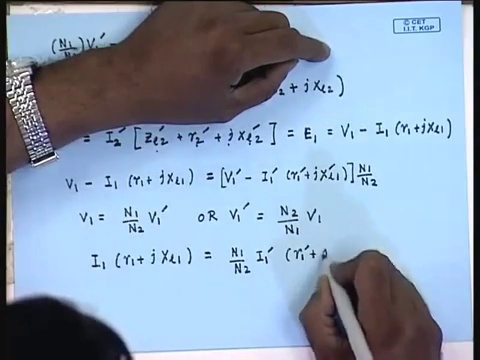 © CET
I.I.T. KGP
(N1/N2) V1′ −
2 + j x_l2)
= I2′ [ Z_l2′ + r2′ + j x_l2′ ] = E1 = V1 − I1 (r1 + j x_l1)
V1 − I1 (r1 + j x_l1) = [V1′ − I1′ (r1′ + j x_l1′)] N1/N2
V1 = N1/N2 V1′ OR V1′ = N2/N1 V1
I1 (r1 + j x_l1) = N1/N2 I1′ (r1′ +